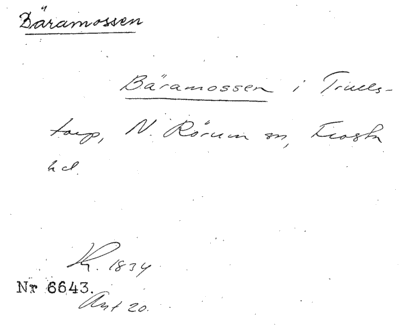 Bäramossen
Bäramossen i Truls-
torp, N. Rörum sn, Frosta
hd.
Kr. 1834
Nr 6643.
Akt 20.